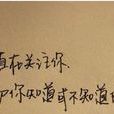 直在关注你
你知道或不知道的